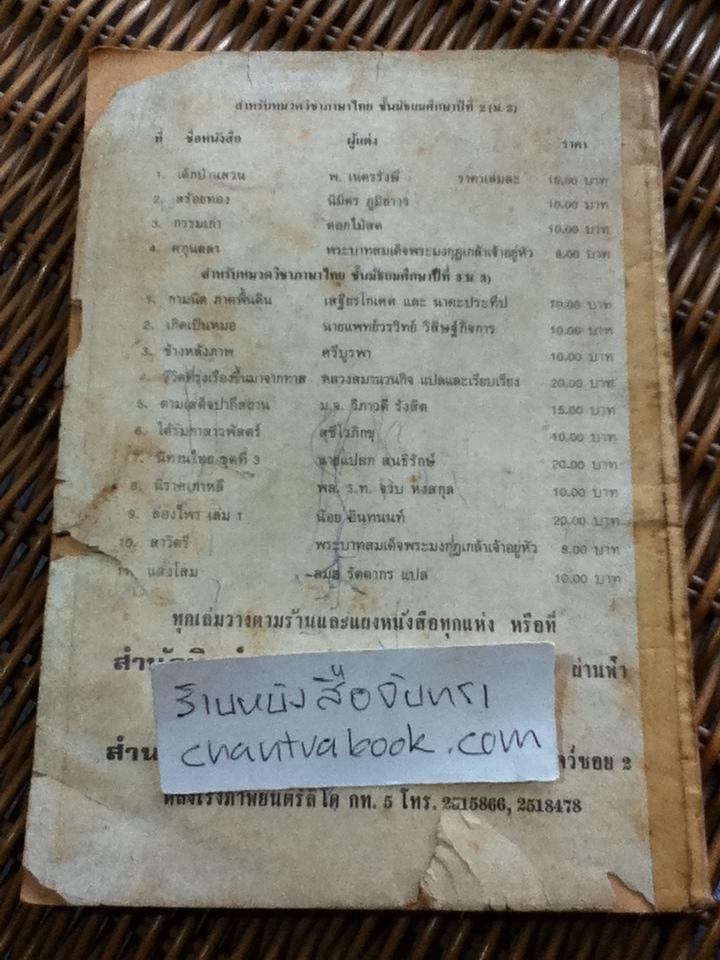 สำหรับหมวดวิชาภาษาไทย ชั้นมัธยมศึกษาปีที่ 2 (ม. 2)
ที่ ชื่อหนังสือ ผู้แต่ง ราคา
1. เด็กบ้านสวน พ. เนตรรังษี ราคาเล่มละ 15.00 บาท
2. สร้อยทอง นิมิตร ภูมิถาวร 10.00 บาท
3. กรรมเก่า ดอกไม้สด 10.00 บาท
4. ศกุนตลา พระบาทสมเด็จพระมงกุฎเกล้าเจ้าอยู่หัว 8.00 บาท
สำหรับหมวดวิชาภาษาไทย ชั้นมัธยมศึกษาปีที่ 3 ม. 3)
1. กามนิต ภาคพื้นดิน เสฐียรโกเศศ และ นาคะประทีป 10.00 บาท
2. เกิดเป็นหมอ นายแพทย์วรวิทย์ วิสิษฐ์กิจการ 10.00 บาท
3. ข้างหลังภาพ ศรีบูรพา 10.00 บาท
4. ชีวิตที่รุ่งเรืองขึ้นมาจากทาส หลวงสมานวนกิจ แปลและเรียบเรียง 20.00 บาท
5. ตามเสด็จปากีสถาน ม.จ. วิภาวดี รังสิต 15.00 บาท
6. ใต้ร่มกาสาวพัสตร์ สุชีโวภิกขุ 10.00 บาท
7. นิทานไทย ชุดที่ 3 นายแปลก สนธิรักษ์ 20.00 บาท
8. นิราศเกาหลี พล. ร.ท. จวบ หงสกุล 10.00 บาท
9. ล่องไพร เล่ม 1 น้อย อินทนนท์ 20.00 บาท
10. สาวิตรี พระบาทสมเด็จพระมงกุฎเกล้าเจ้าอยู่หัว 8.00 บาท
11. แสงโสม รัตตากร แปล 10.00 บาท
ทุกเล่มวางตามร้านและแผงหนังสือทุกแห่ง หรือที่
ผ่านฟ้า
ร้านหนังสือจันทรา
chantrabook.com
ซอย 2
หลังโรงภาพยนตร์ลิโด กท. 5 โทร. 2515866, 2518478